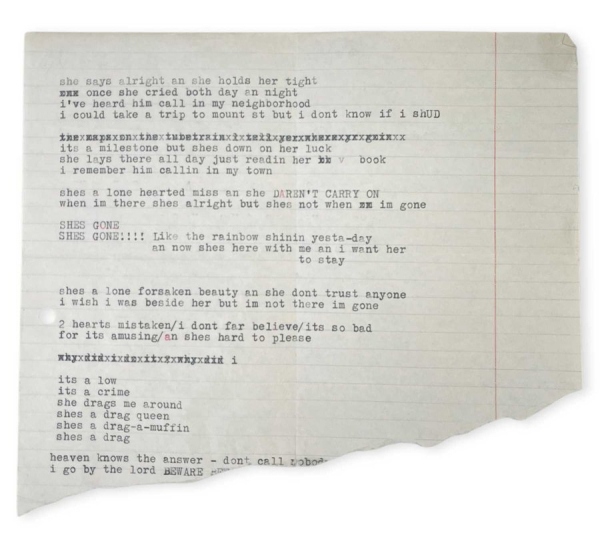 she says alright an she holds her tight
once she cried both day an night
i've heard him call in my neighborhood
i could take a trip to mount st but i dont know if i shUD
the maps on the tubetrain i tell yer where yr goin
its a milestone but shes down on her luck
she lays there all day just readin her v book
i remember him callin in my town
shes a lone hearted miss an she DAREN'T CARRY ON
when im there shes alright but shes not when im gone
SHES GONE
SHES GONE!!!! Like the rainbow shinin yesta-day
an now shes here with me an i want her
to stay
shes a lone forsaken beauty an she dont trust anyone
i wish i was beside her but im not there im gone
2 hearts mistaken/i dont far believe/its so bad
for its amusing/an shes hard to please
why did i do it? why did i
its a low
its a crime
she drags me around
shes a drag queen
shes a drag-a-muffin
shes a drag
heaven knows the answer - dont call
i go by the lord BEWARE